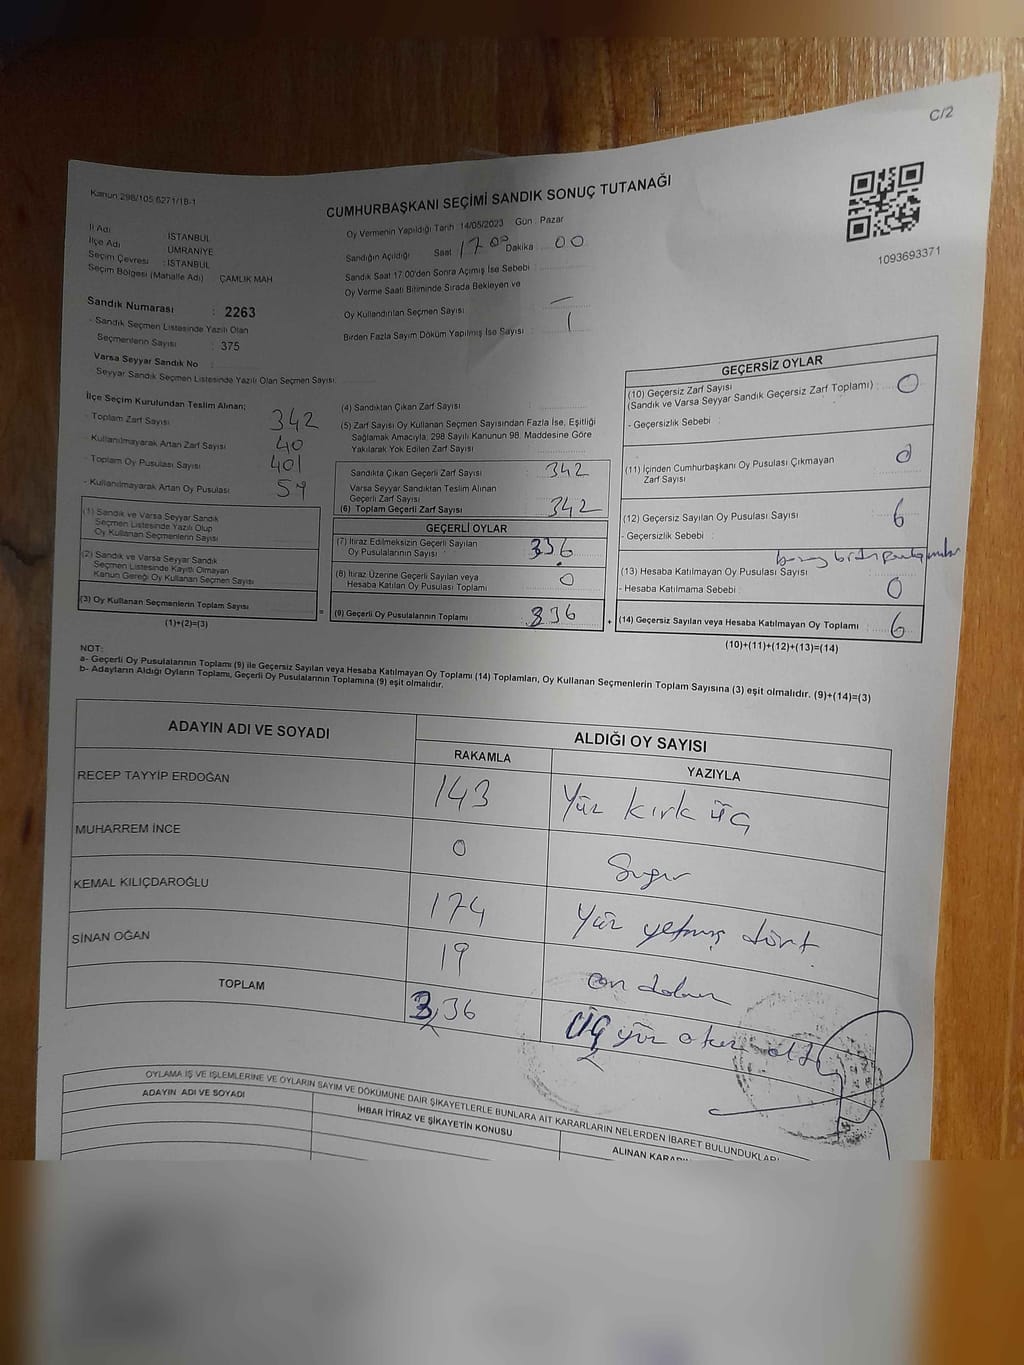 C/2
Kanun:298/105 6271/18-1
CUMHURBAŞKANI SEÇİMİ SANDIK SONUÇ TUTANAĞI
1093693371
İl Adı : İSTANBUL
İlçe Adı : ÜMRANİYE
Seçim Çevresi : İSTANBUL
Seçim Bölgesi (Mahalle Adı) : ÇAMLIK MAH
Sandık Numarası : 2263
- Sandık Seçmen Listesinde Yazılı Olan
Seçmenlerin Sayısı : 375
Varsa Seyyar Sandık No :
Seyyar Sandık Seçmen Listesinde Yazılı Olan Seçmen Sayısı:
Oy Vermenin Yapıldığı Tarih :14/05/2023 Gün : Pazar
Sandığın Açıldığı Saat 17 00 Dakika 00
Sandık Saat 17:00'den Sonra Açımış İse Sebebi :
Oy Verme Saati Bitiminde Sırada Bekleyen ve
Oy Kullandırılan Seçmen Sayısı : —
Birden Fazla Sayım Döküm Yapılmış İse Sayısı : 1
İlçe Seçim Kurulundan Teslim Alınan;
- Toplam Zarf Sayısı 342
- Kullanılmayarak Artan Zarf Sayısı 40
- Toplam Oy Pusulası Sayısı 401
- Kullanılmayarak Artan Oy Pusulası 59
(1) Sandık ve Varsa Seyyar Sandık
Seçmen Listesinde Yazılı Olup
Oy Kullanan Seçmenlerin Sayısı
(2) Sandık ve Varsa Seyyar Sandık
Seçmen Listesinde Kayıtlı Olmayan
Kanun Gereği Oy Kullanan Seçmen Sayısı
(3) Oy Kullanan Seçmenlerin Toplam Sayısı
(1)+(2)=(3)
=
(4) Sandıktan Çıkan Zarf Sayısı :
(5) Zarf Sayısı Oy Kullanan Seçmen Sayısından Fazla İse, Eşitliği
Sağlamak Amacıyla, 298 Sayılı Kanunun 98. Maddesine Göre
Yakılarak Yok Edilen Zarf Sayısı :
Sandıkta Çıkan Geçerli Zarf Sayısı : 342
Varsa Seyyar Sandıktan Teslim Alınan
Geçerli Zarf Sayısı :
(6) Toplam Geçerli Zarf Sayısı : 342
GEÇERLİ OYLAR
(7) İtiraz Edilmeksizin Geçerli Sayılan
Oy Pusulalarının Sayısı : 336
(8) İtiraz Üzerine Geçerli Sayılan veya
Hesaba Katılan Oy Pusulası Toplamı : 0
(9) Geçerli Oy Pusulalarının Toplamı : 336
+
GEÇERSİZ OYLAR
(10) Geçersiz Zarf Sayısı
(Sandık ve Varsa Seyyar Sandık Geçersiz Zarf Toplamı) : 0
- Geçersizlik Sebebi :
(11) İçinden Cumhurbaşkanı Oy Pusulası Çıkmayan
Zarf Sayısı : 0
(12) Geçersiz Sayılan Oy Pusulası Sayısı : 6
- Geçersizlik Sebebi :
(13) Hesaba Katılmayan Oy Pusulası Sayısı :
- Hesaba Katılmama Sebebi : 0
(14) Geçersiz Sayılan veya Hesaba Katılmayan Oy Toplamı : 6
(10)+(11)+(12)+(13)=(14)
NOT:
a- Geçerli Oy Pusulalarının Toplamı (9) ile Geçersiz Sayılan veya Hesaba Katılmayan Oy Toplamı (14) Toplamları, Oy Kullanan Seçmenlerin Toplam Sayısına (3) eşit olmalıdır. (9)+(14)=(3)
b- Adayların Aldığı Oyların Toplamı, Geçerli Oy Pusulalarının Toplamına (9) eşit olmalıdır.
ADAYIN ADI VE SOYADI
ALDIĞI OY SAYISI
RAKAMLA YAZIYLA
RECEP TAYYİP ERDOĞAN 143 Yüz kırk üç
MUHARREM İNCE 0 Sıfır
KEMAL KILIÇDAROĞLU 174 Yüz yetmiş dört
SİNAN OĞAN 19 on dokuz
TOPLAM 336 üç yüz otuz altı
OYLAMA İŞ VE İŞLEMLERİNE VE OYLARIN SAYIM VE DÖKÜMÜNE DAİR ŞİKAYETLERLE BUNLARA AİT KARARLARIN NELERDEN İBARET BULUNDUKLARI
ADAYIN ADI VE SOYADI
İHBAR İTİRAZ VE ŞİKAYETİN KONUSU
ALINAN KARARI